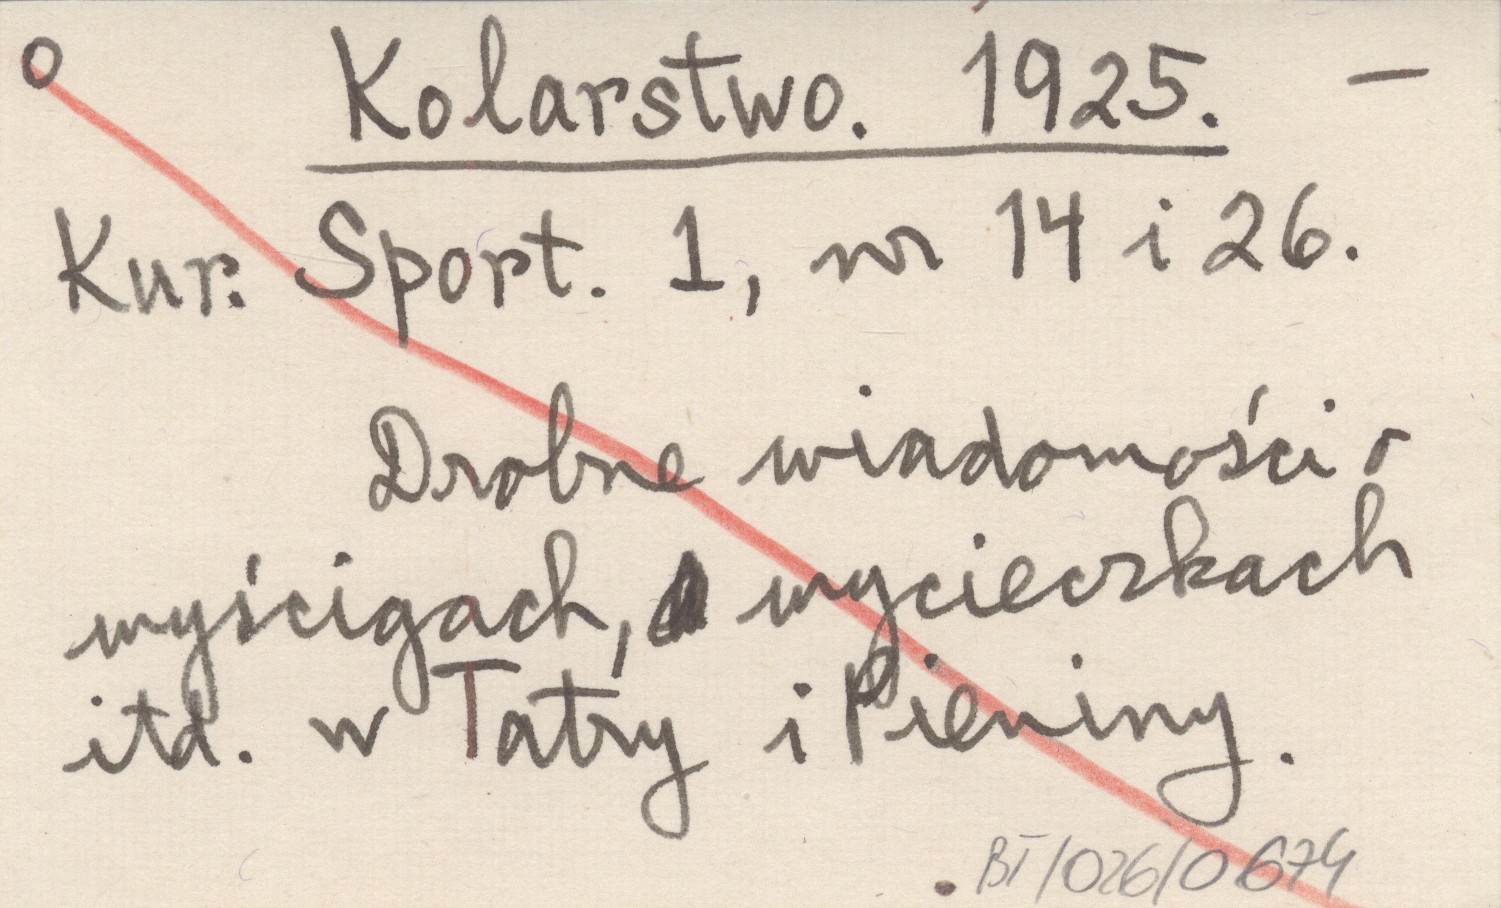 o Kolarstwo. 1925. —
Kur. Sport. 1, nr 14 i 26.
Drobne wiadomości o
wyścigach, wycieczkach
itd. w Tatry i Pieniny.
BT/026/0674